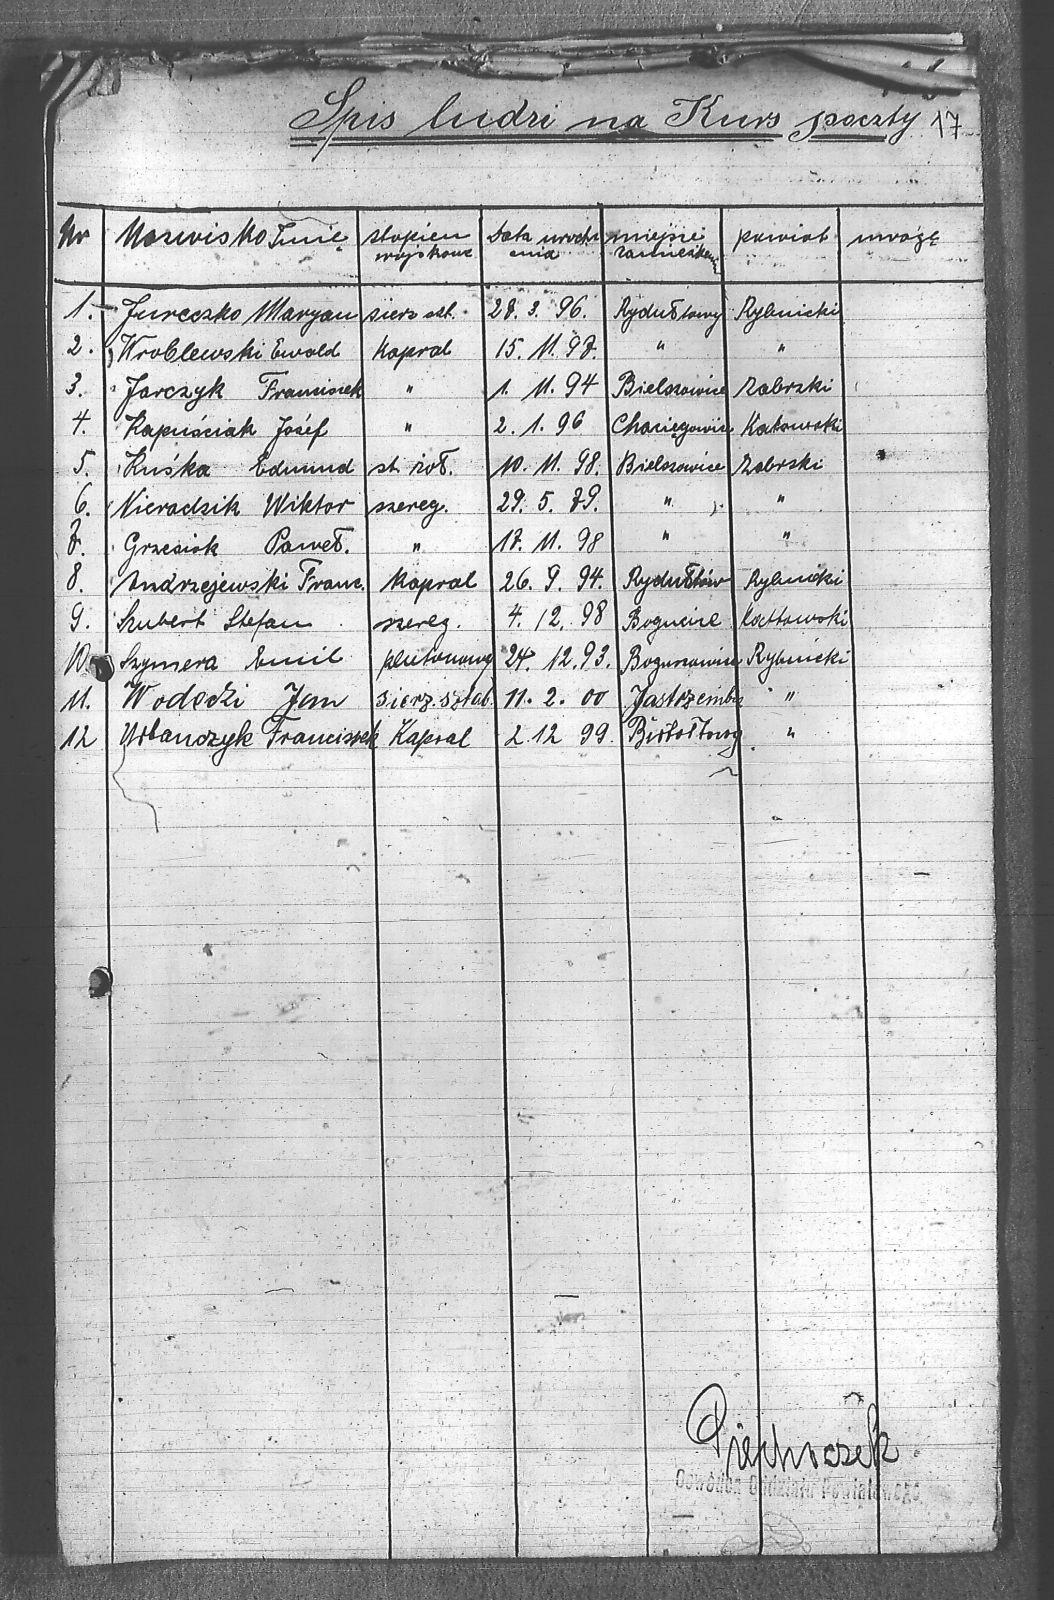 Spis ludzi na Kurs poczty 17
Nr Nazwisko Imię stopień wojskowe Data urodze nia miejsce zamieszkan powiat uwagę
1. Jureczko Maryan sierz szt. 28. 3. 96. Rydułtowy Rybnicki
2. Wroblewski Ewald Kapral 15. 11. 97. " "
3. Jarczyk Franciszek " 1. 11. 94 Bielszowice Zabrzski
4. Kapuściak Józef " 2. 1. 96 Katowski
5. Kuśka Edmund st. żoł. 10. 11. 98. Bielszowice Zabrski
6. Nieradzik Wiktor szereg. 29. 5. 79. " "
7. Grzesiok Paweł. " 17. 11. 98 " "
8. Andrzejewski Franc. Kapral 26. 9. 94. Rydułtów Rybnicki
9. Szubert Stefan szereg. 4. 12. 98 Bogucice
10. Szymera Emil plutonowy 24. 12. 93. Rybnicki
11. Wodecki Jan sierz. sztab. 11. 2. 00 Jastrzembie "
12 Urbanczyk Franciszek Kapral 2. 12 99. "
Piechoczek
Dowódca Oddziału Powiatowego